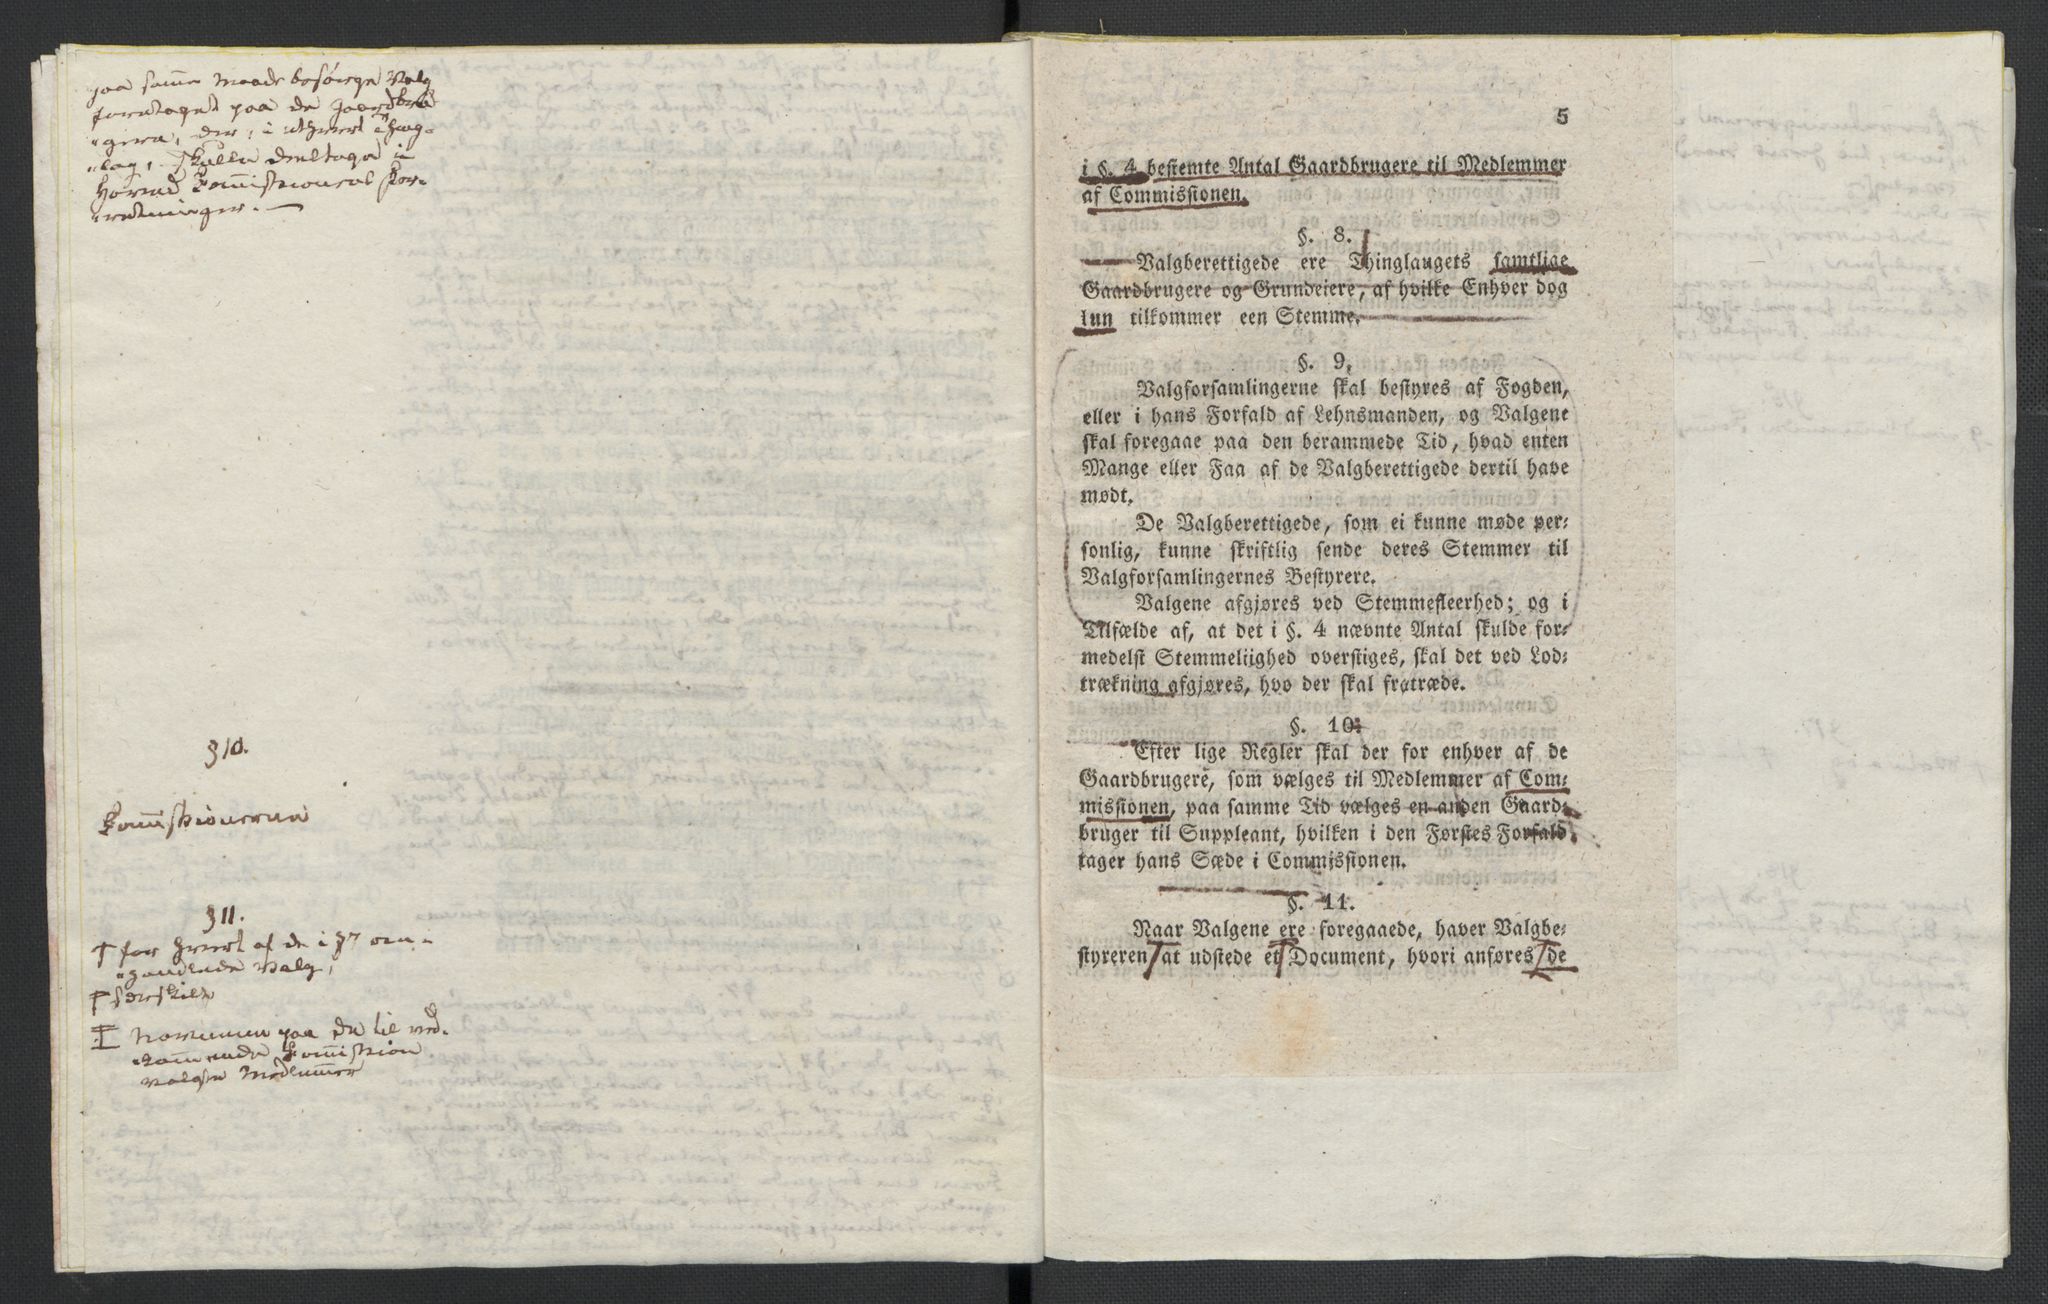 paa samme Maade besørge Valg
foretaget paa de Gaardbru
"gere, der, i ethvert Thing-
"lag, skulle deeltage i
hvert Commissionens For-
"retninger. —
§10.
Commissionerne
§11.
for hvert af de i §7 om-
"handlede Valg,
særskilt
Navnene paa de til ved-
"kommende Commission
valgte Medlemmer
5
i §. 4 bestemte Antal Gaardbrugere til Medlemmer
af Commissionen.
§. 8.
Valgberettigede ere Thinglaugets samtlige
Gaardbrugere og Grundeiere, af hvilke Enhver dog
kun tilkommer een Stemme.
§. 9.
Valgforsamlingerne skal bestyres af Fogden,
eller i hans Forfald af Lehnsmanden, og Valgene
skal foregaae paa den berammede Tid, hvad enten
Mange eller Faa af de Valgberettigede dertil have
mødt.
De Valgberettigede, som ei kunne møde per-
sonlig, kunne skriftlig sende deres Stemmer til
Valgforsamlingernes Bestyrere.
Valgene afgjøres ved Stemmefleerhed; og i
Tilfælde af, at det i §. 4 nævnte Antal skulde for-
medelst Stemmeliighed overstiges, skal det ved Lod-
trækning afgjøres, hvo der skal fratræde.
§. 10.
Efter lige Regler skal der for enhver af de
Gaardbrugere, som vælges til Medlemmer af Com-
missionen, paa samme Tid vælges en anden Gaard-
bruger til Suppleant, hvilken i den Førstes Forfald
tager hans Sæde i Commissionen.
§. 11.
Naar Valgene ere foregaaede, haver Valgbe-
styreren at udstede et Document, hvori anføres de